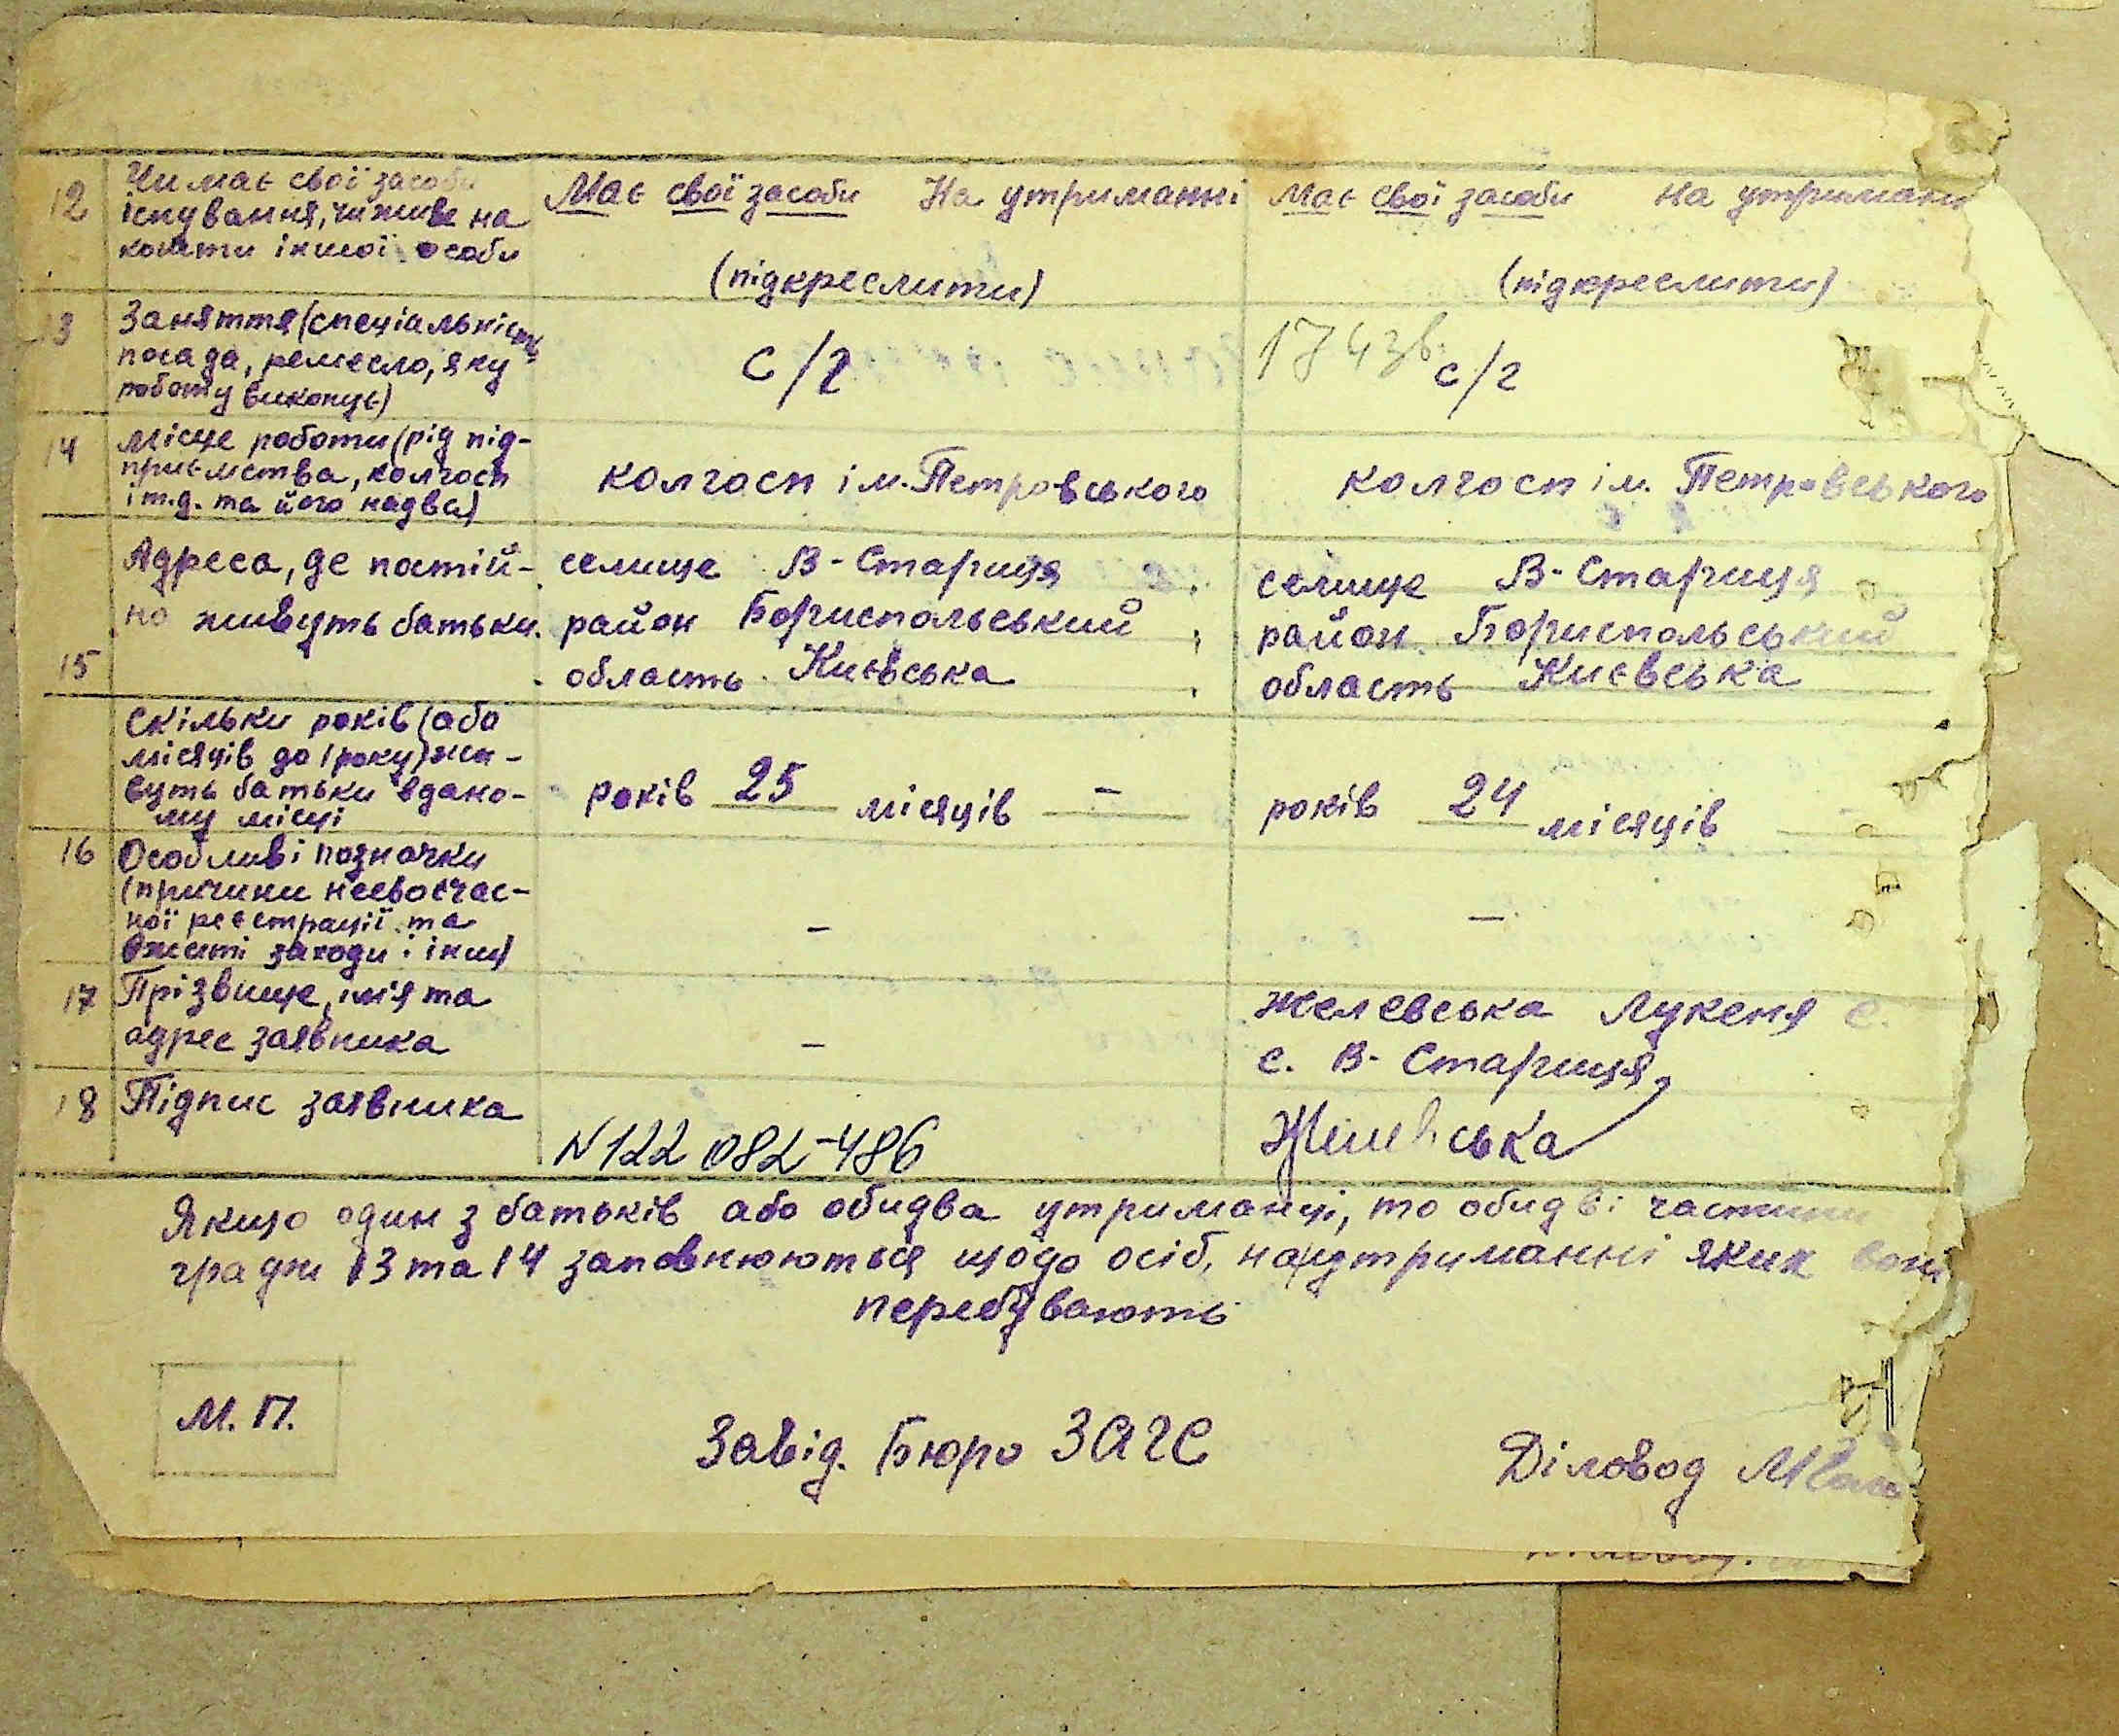 12 Чи має свої засоби
існування, чи живе на
кошти іншої особи
Має свої засоби На утриманні
(підкреслити)
Має свої засоби На утриманн
(підкреслити)
13 Заняття (спеціальність,
посада, ремесло, яку
роботу виконує)
с/г
1743б.
с/г
14 Місце роботи (рід під-
приємства, колгосп
і т.д. та його надва)
колгосп ім. Петровського
колгосп ім. Петровського
15 Адреса, де постій-
но живуть батьки.
селище В-Стариця
район Бориспольський
область Києвська
селище В-Стариця
район Бориспольський
область Києвська
Скільки років (або
місяців до 1 року) жи-
вуть батьки в дано-
му місці
років 25 місяців -
років 24 місяців -
16 Особливі позначки
(причини несвоєчас-
ної реєстрації та
вжиті заходи і інш)
-
-
17 Прізвище, ім'я та
адрес заявника
-
Желевська Лукеня С.
с. В-Стариця
18 Підпис заявника
N122 082-486
Якщо один з батьків або обидва утриманці, то обидві частини
графи 13 та 14 заповнюються щодо осіб, на утриманні яких вони
перебувають
М.П.
Завід. Бюро ЗАГС
Діловод